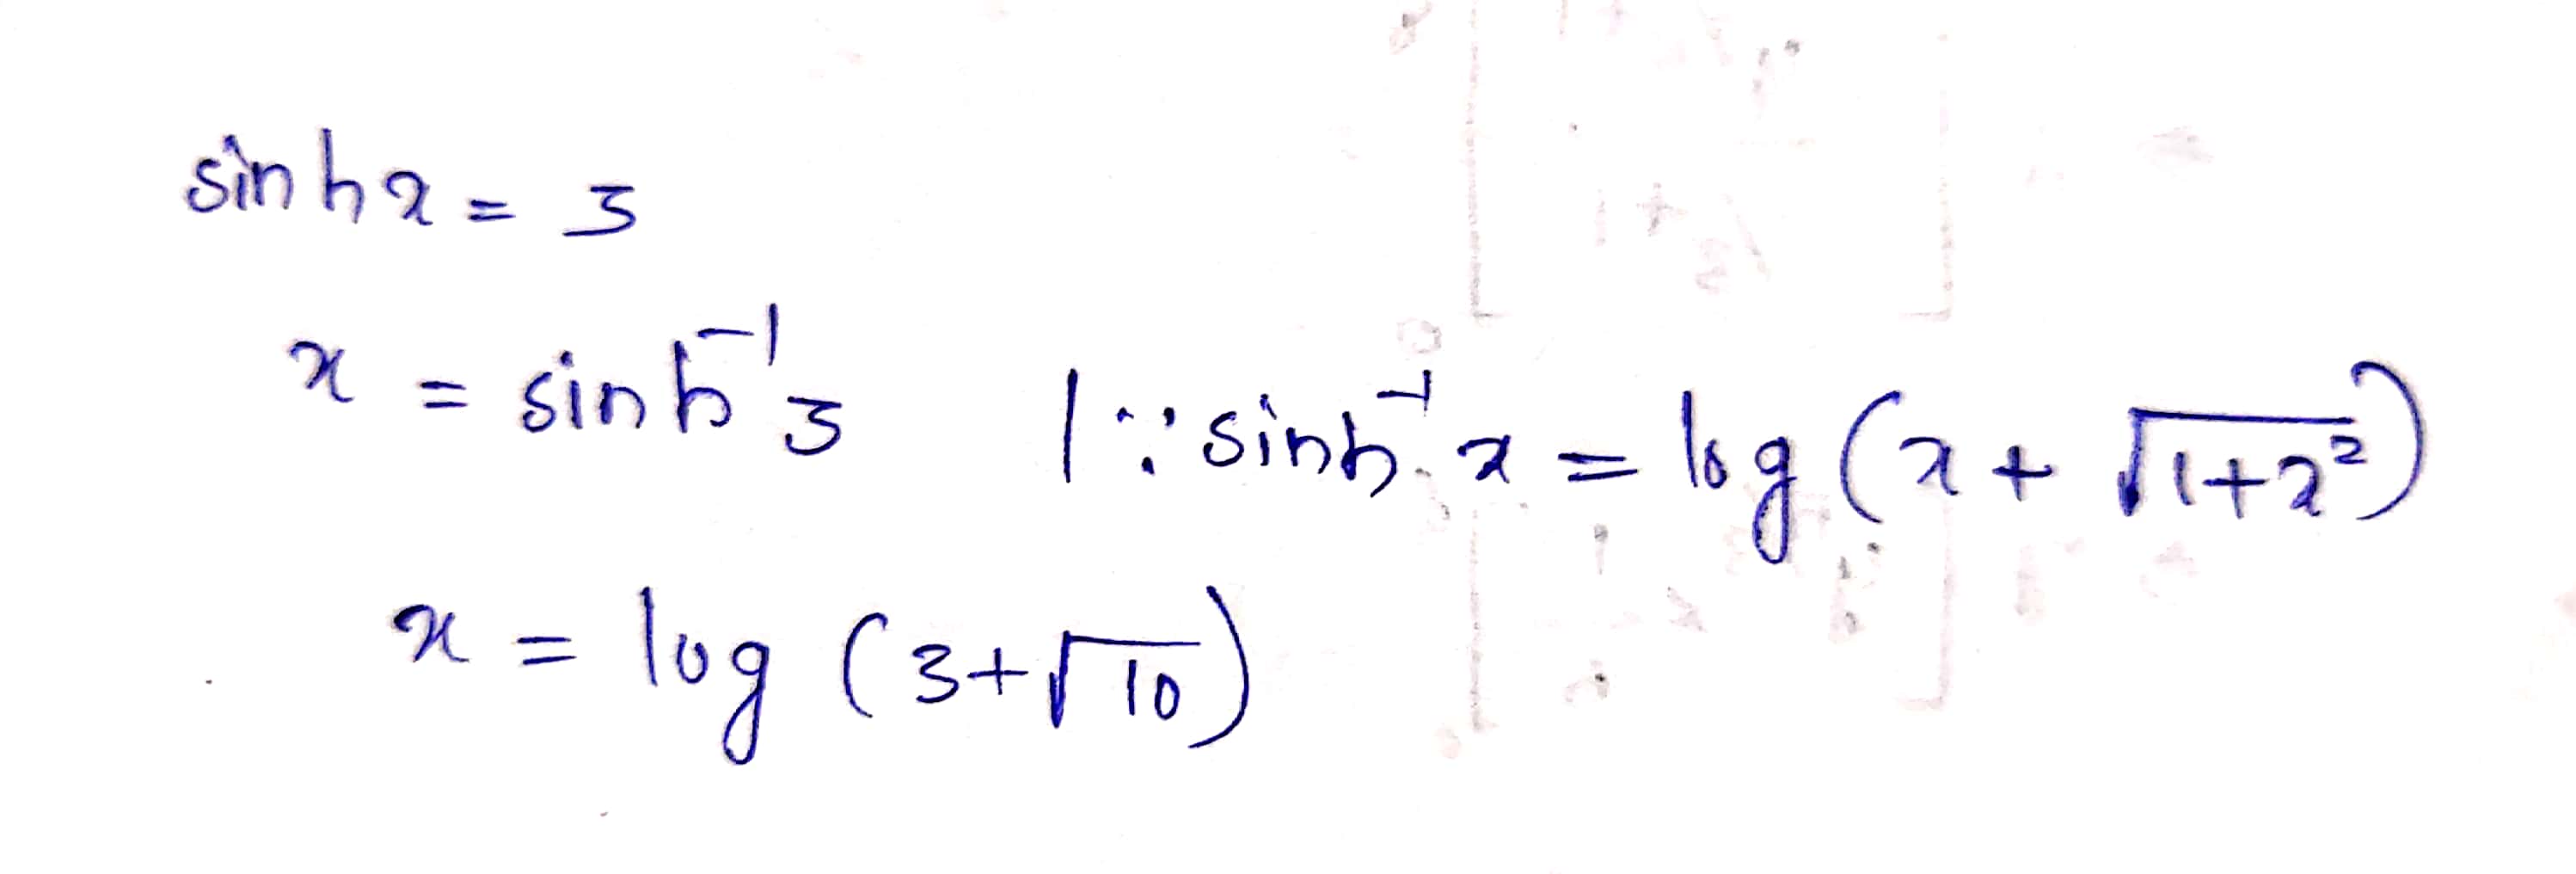 sinh x = 3
x = sinh⁻¹ 3 | ∵ sinh⁻¹ x = log (x + √1+x²)
x = log (3+√10)